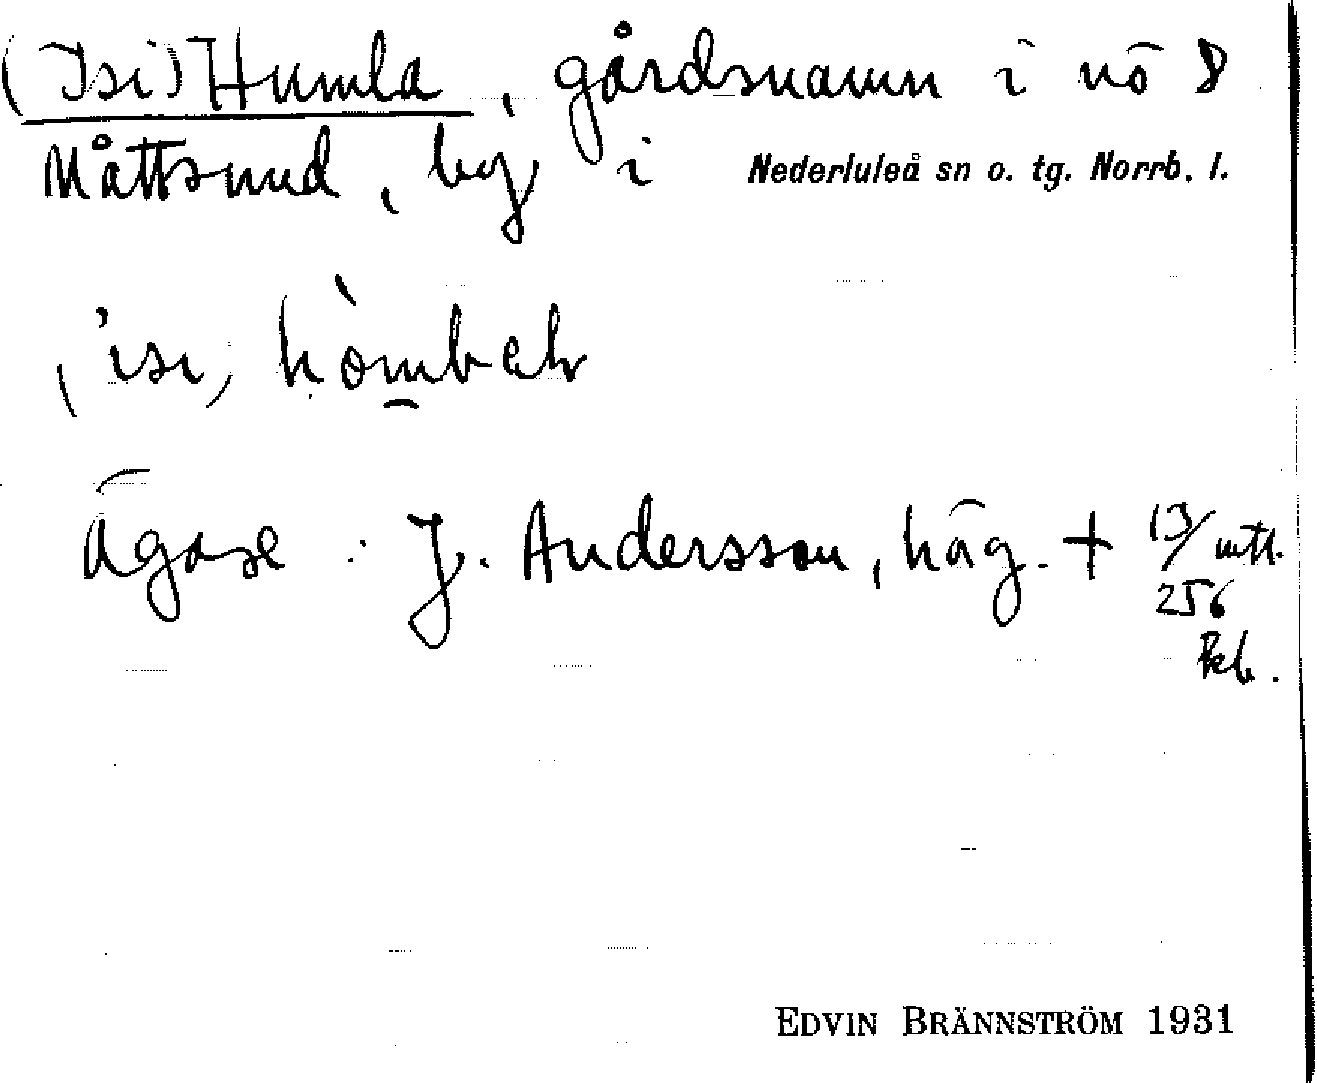 (Isi) Humla, gårdsnamn i nö 8
Måttsund, by i Nederluleå sn o. tg. Norrb. l.
Ägare : J. Andersson, häg. + 13/256 mtl.
EDVIN BRÄNNSTRÖM 1931